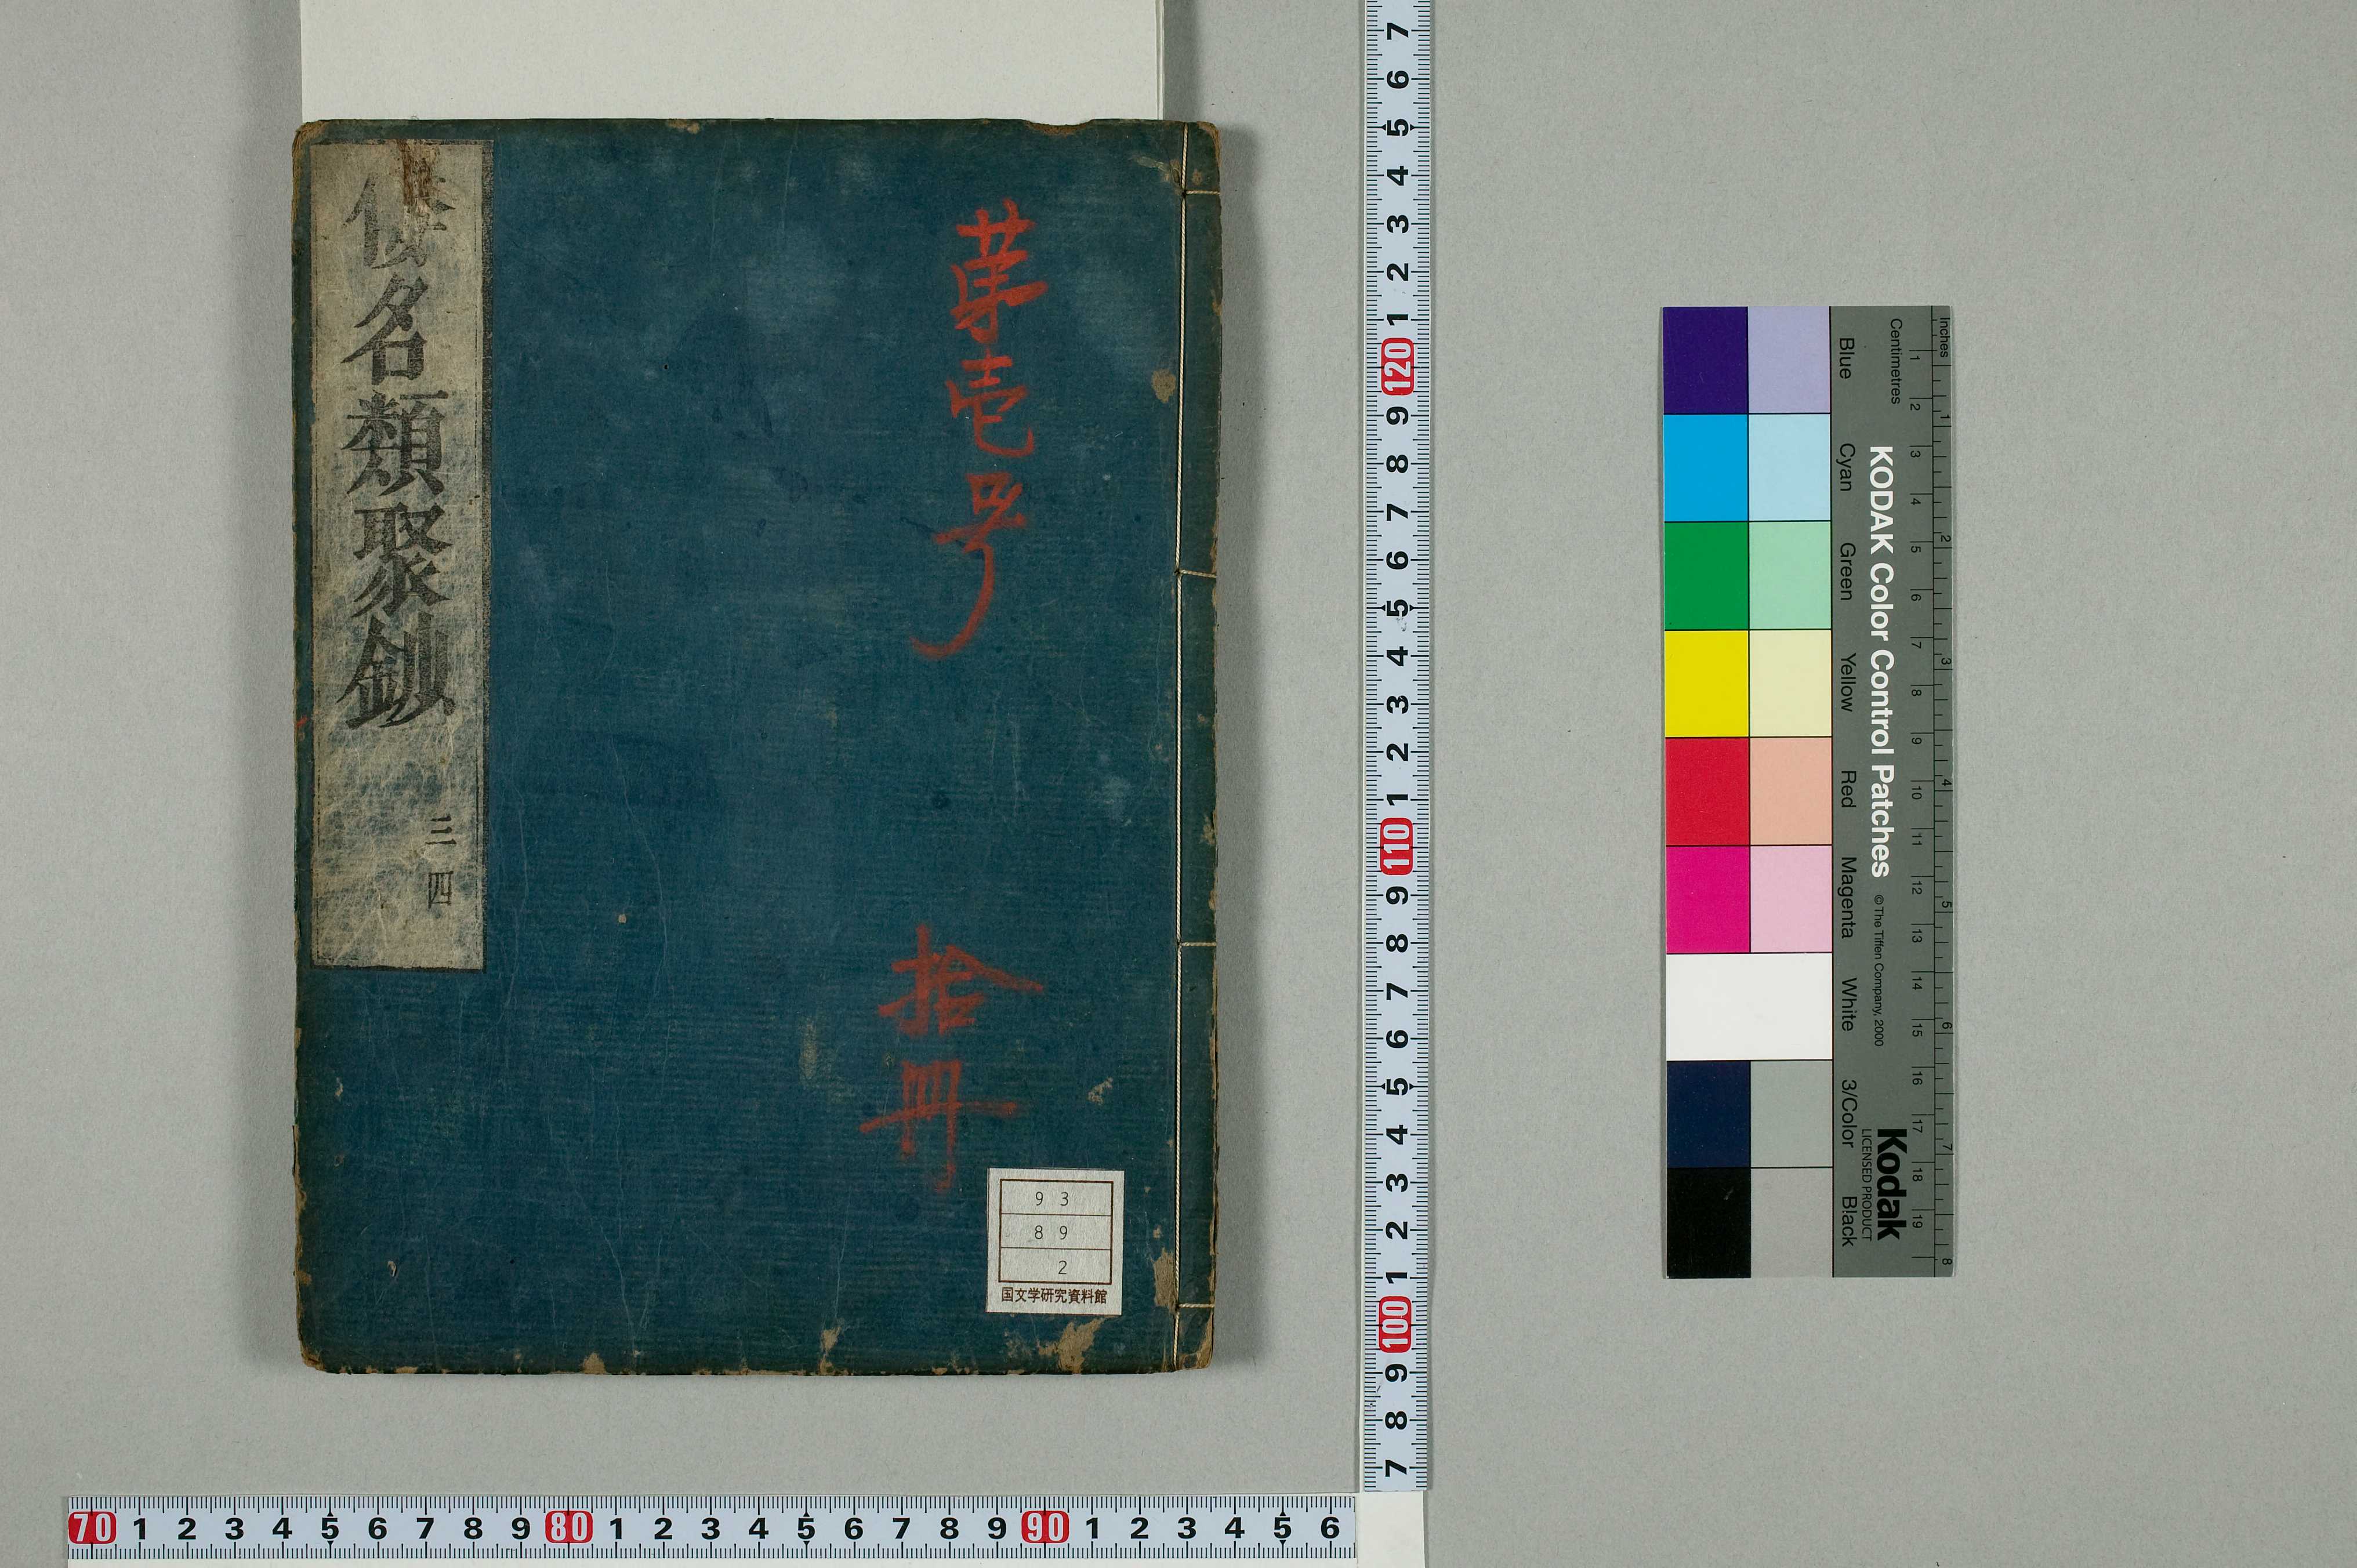 倭名類聚鈔 三四
第壱号
拾冊
93
89
2
国文学研究資料館
7 6 5 4 3 2 1 120 9 8 7 6 5 4 3 2 1 110 9 8 7 6 5 4 3 2 1 100 9 8 7
70 1 2 3 4 5 6 7 8 9 80 1 2 3 4 5 6 7 8 9 90 1 2 3 4 5 6
Inches 1 2 3 4 5 6 7 8
Centimetres 1 2 3 4 5 6 7 8 9 10 11 12 13 14 15 16 17 18 19
KODAK Color Control Patches © The Tiffen Company, 2000 Kodak
LICENSED PRODUCT
Blue Cyan Green Yellow Red Magenta White 3/Color Black